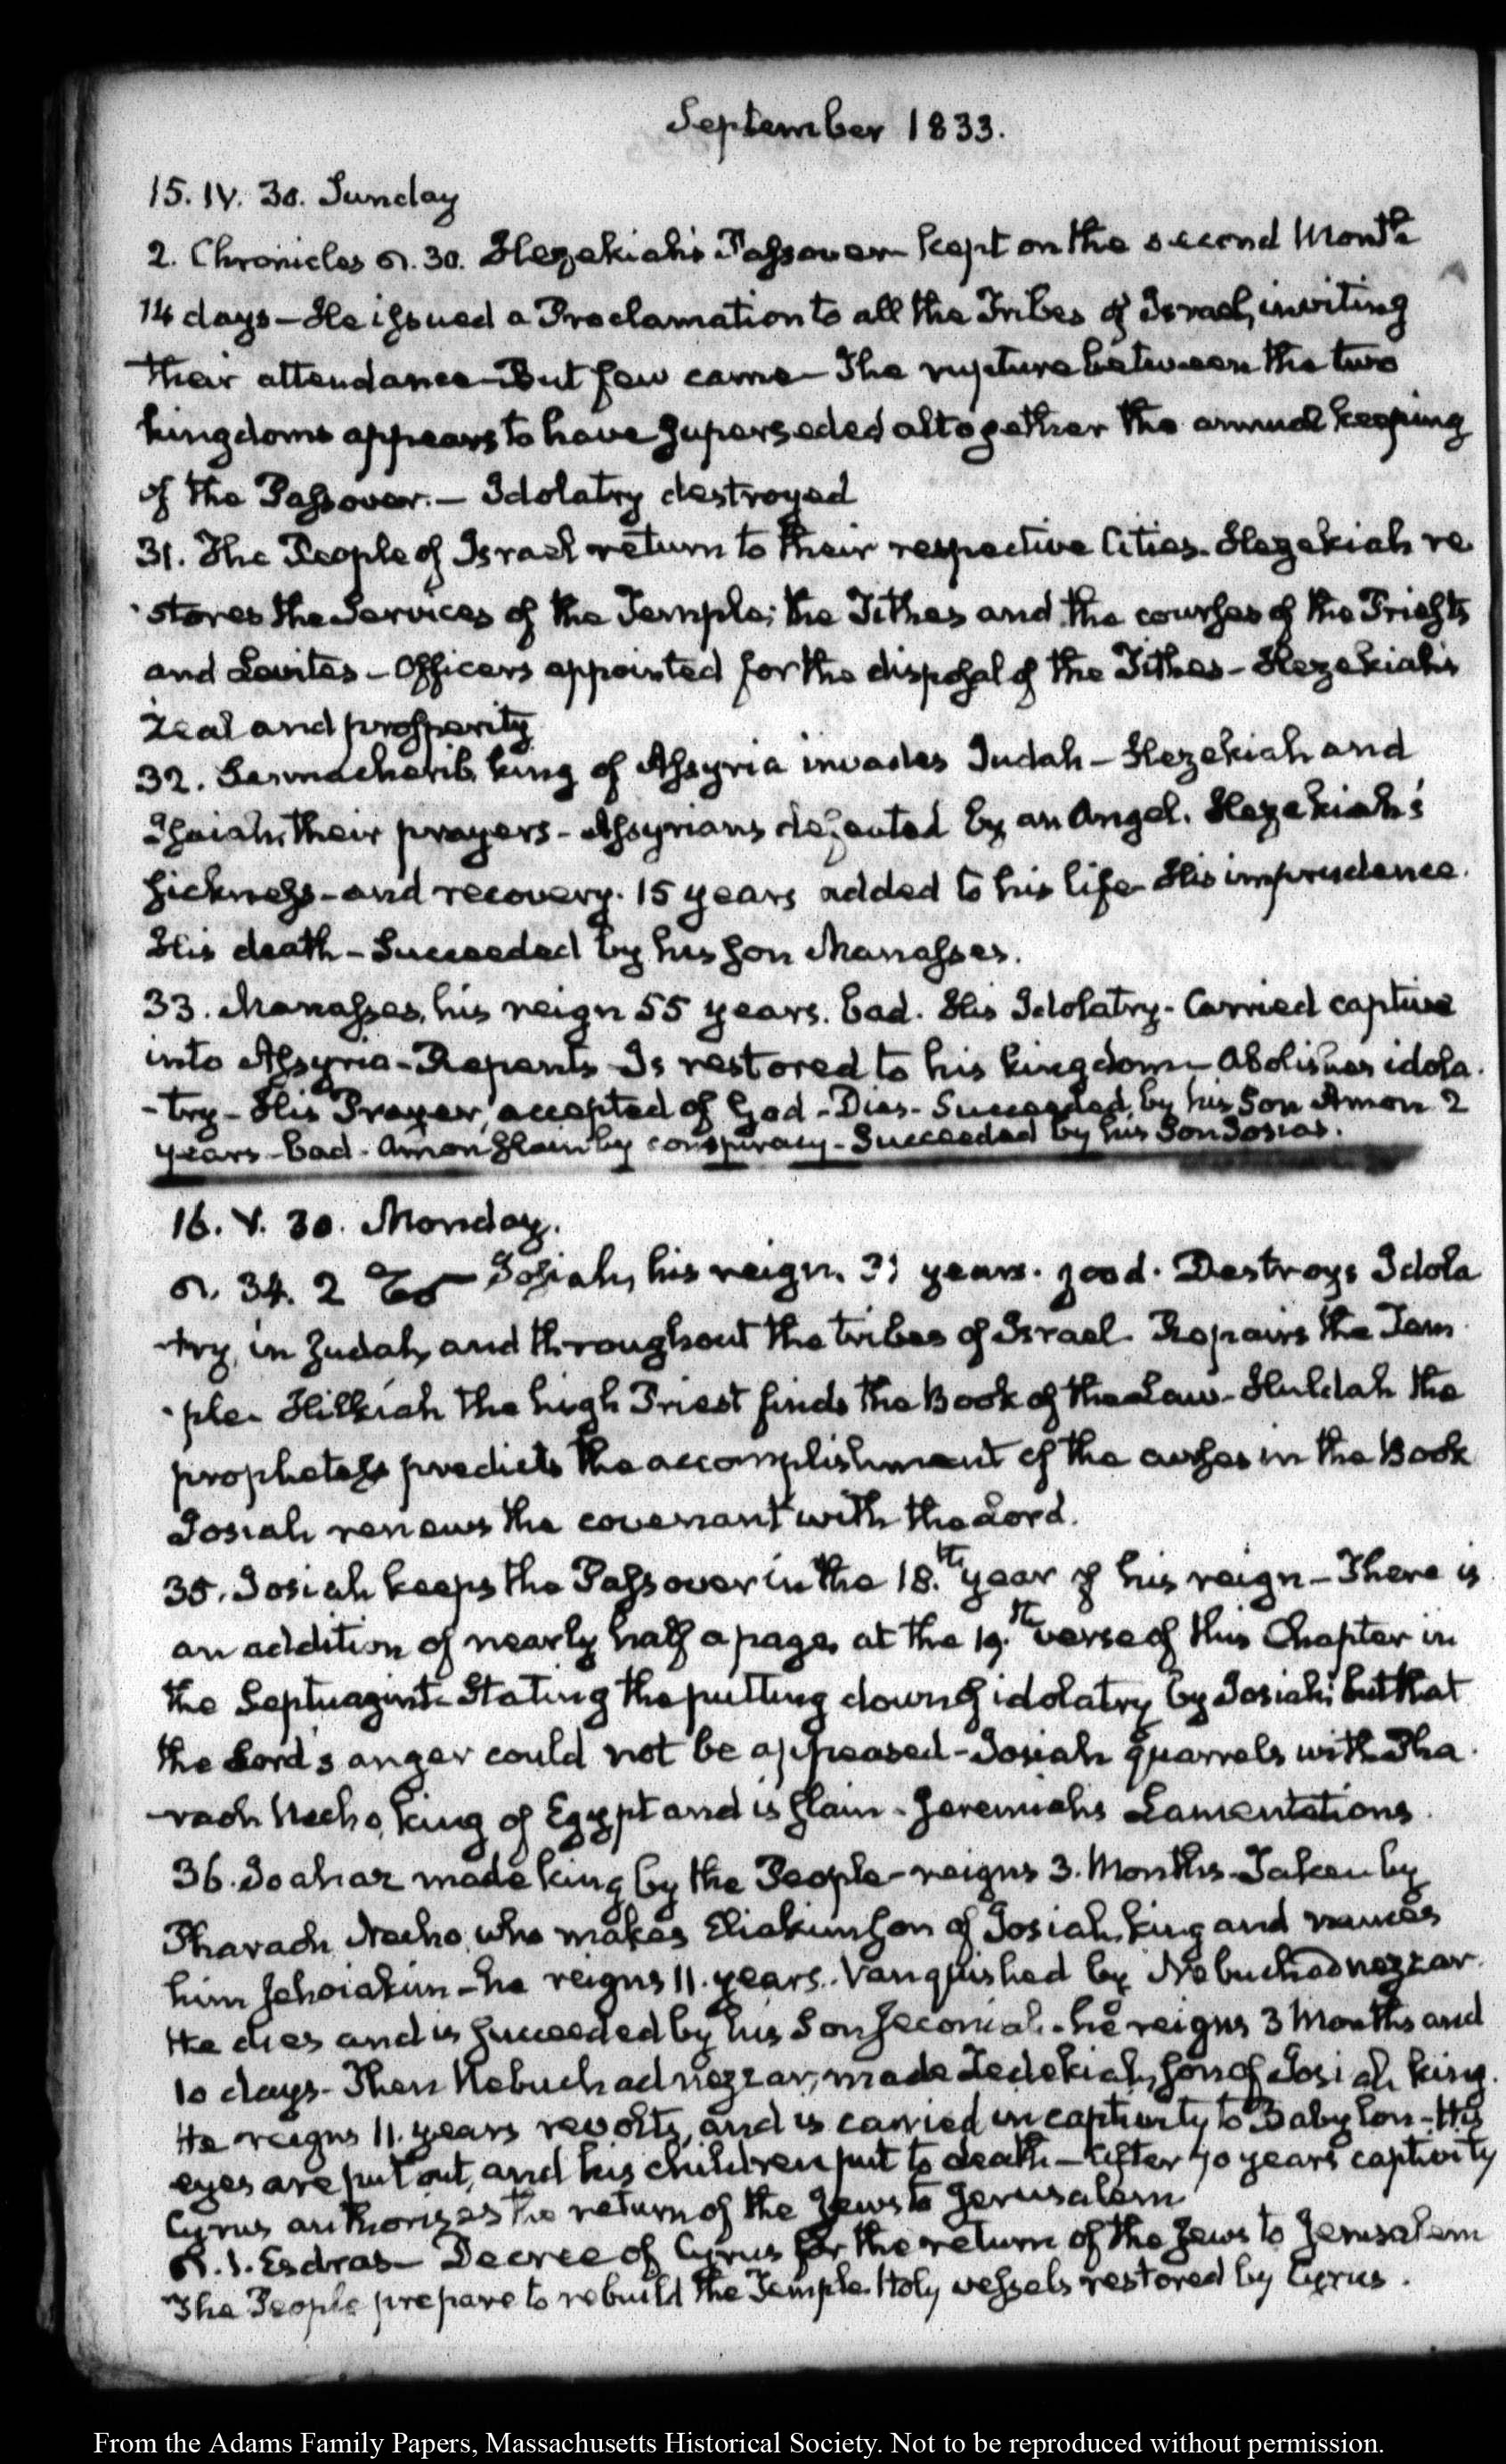 September 1833.
15. IV. 30. Sunday
2. Chronicles 30. Hezekiah's Passover kept on the second Month
14 days – He issued a Proclamation to all the Tribes of Israel, inviting
their attendance – But few came – The rupture between the two
kingdoms appears to have superseded altogether the annual keeping
of the Passover. – Idolatry destroyed
31. The People of Israel return to their respective Cities. Hezekiah re
-stores the Services of the Temple; the Tithes and the courses of the Priests
and Levites – Officers appointed for the disposal of the Tithes – Hezekiah's
zeal and prosperity
32. Sennacherib, king of Assyria invades Judah – Hezekiah and
Isaiah, their prayers – Assyrians defeated by an Angel. Hezekiah's
sickness – and recovery. 15 years added to his life – His imprudence.
His death – Succeeded by his son Manasses.
33. Manasses, his reign 55 years. bad. His Idolatry – Carried captive
into Assyria – Repents – Is restored to his kingdom – Abolishes idola
-try – His Prayer, accepted of God – Dies – Succeeded, by his Son Amon 2
years – bad – Amon slain by conspiracy – Succeeded by his Son Josias.
16. V. 30. Monday.
34. 2 Josiah, his reign, 31 years. good. Destroys Idola
-try, in Judah, and throughout the tribes of Israel. Repairs the Tem
-ple. Hilkiah the high Priest finds the Book of the Law – Huldah the
prophetess predicts the accomplishment of the curses in the Book
Josiah renews the covenant with the Lord.
35. Josiah keeps the Passover in the 18.th year of his reign – There is
an addition of nearly half a page, at the 19.th verse of this Chapter in
the Septuagint – Stating the putting down of idolatry by Josiah; but that
the Lord's anger could not be appeased – Josiah quarrels with Pha
-raoh Necho, king of Egypt and is slain – Jeremiah's Lamentations.
36. Joahaz made king by the People – reigns 3. Months – Taken by
Pharaoh Necho, who makes Eliakim son of Josiah, king and names
him Jehoiakim – he reigns 11. years. Vanquished by Nebuchadnezzar.
He dies and is succeeded by his Son Jeconiah – he reigns 3 Months and
10 days – Then Nebuchadnezzar, made Zedekiah, son of Josiah king.
He reigns 11. years revolts, and is carried in captivity to Babylon – His
eyes are put out, and his children put to death – After 70 years captivity
Cyrus authorizes the return of the Jews to Jerusalem
1. Esdras – Decree of Cyrus for the return of the Jews to Jerusalem
The People prepare to rebuild the Temple. Holy vessels restored by Cyrus.
From the Adams Family Papers, Massachusetts Historical Society. Not to be reproduced without permission.